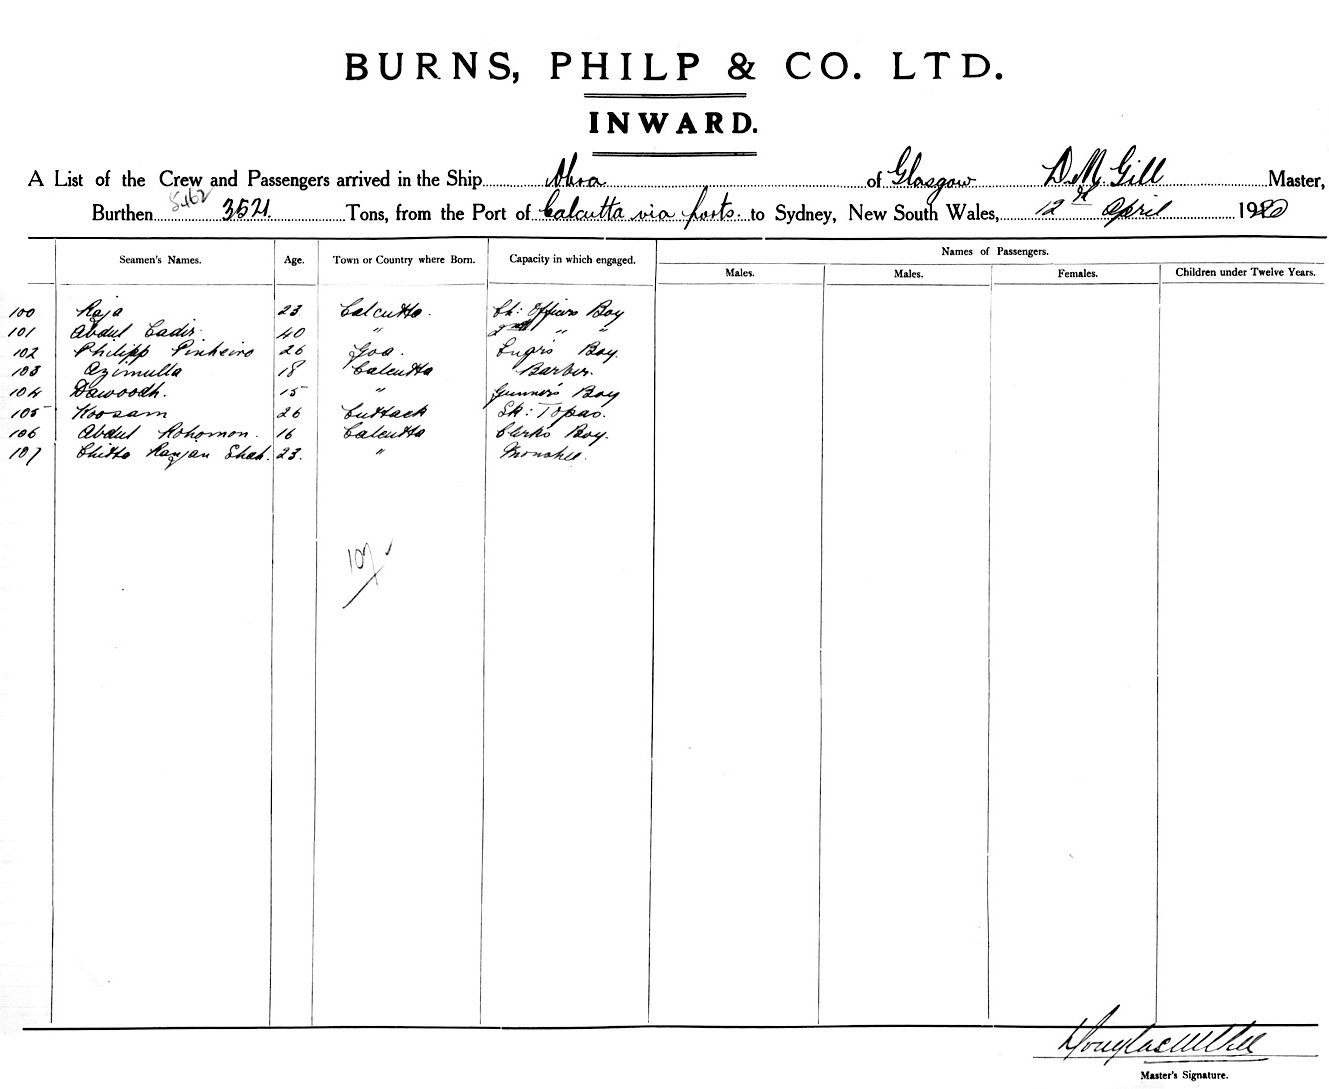 BURNS, PHILP & CO. LTD.
INWARD.
A List of the Crew and Passengers arrived in the Ship Abra of Glasgow D. M. Gill Master,
5462
Burthen 3521. Tons, from the Port of Calcutta via ports. to Sydney, New South Wales, 12th April 1920
Names of Passengers.
Seamen's Names. Age. Town or Country where Born. Capacity in which engaged. Males. Males. Females. Children under Twelve Years.
100 Raja 23 Calcutta. Ch: Officers Boy
101 Abdul Cadir. 40 " 2nd " "
102 Philipp Pinheiro 26 Goa. Engrs Boy.
103 Azimulla 18 Calcutta Barber.
104 Dawoodh. 15 " Gunner's Boy
105 Koosam 26 Cuttack Sk: Topas.
106 Abdul Rohomon. 16 Calcutta Clerks Boy.
107 Chitto Ranjan Shah. 23. " Monshee.
107 ✓
Master's Signature.